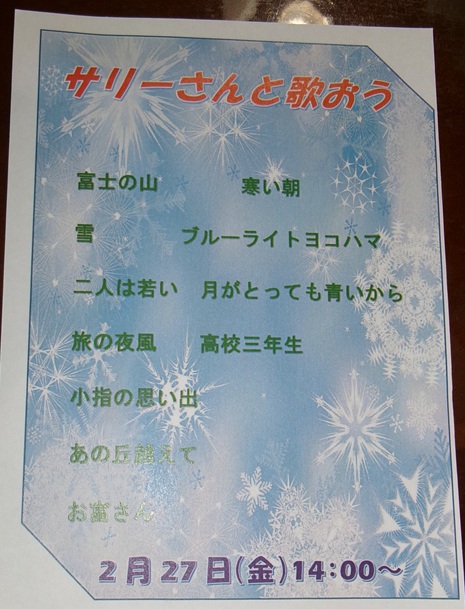 サリーさんと歌おう
富士の山　寒い朝
雪　ブルーライトヨコハマ
二人は若い　月がとっても青いから
旅の夜風　高校三年生
小指の思い出
あの丘越えて
お富さん
2月27日(金)14:00～